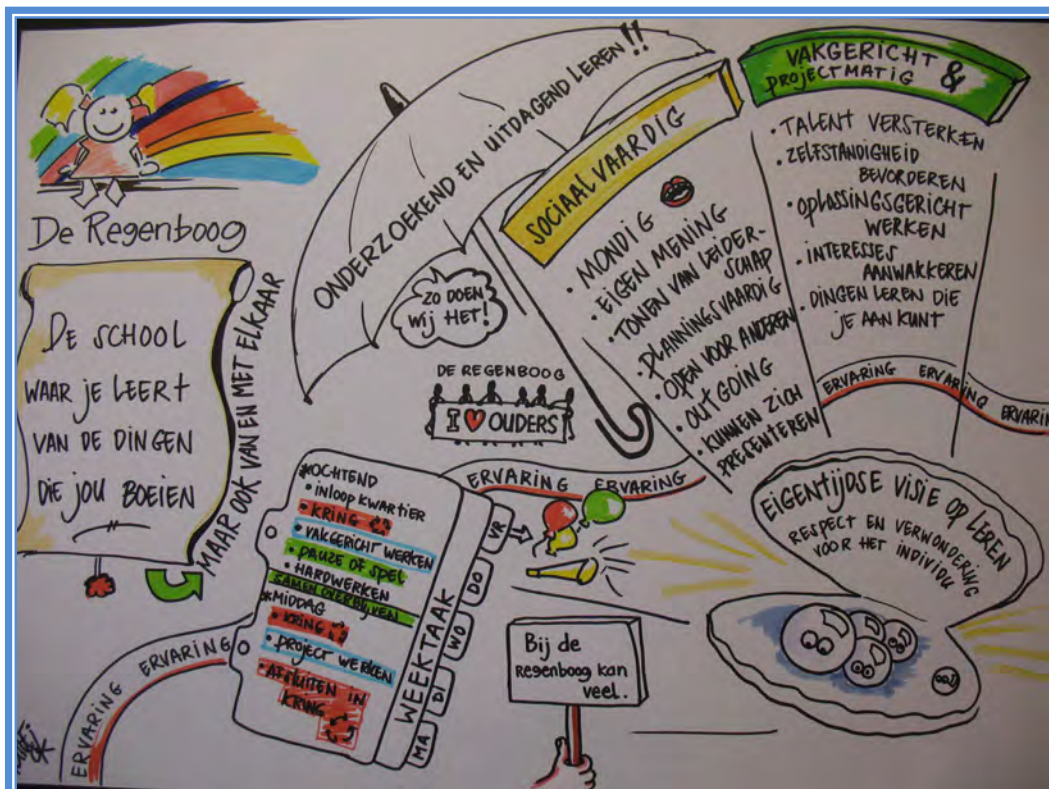 De Regenboog
DE SCHOOL
WAAR JE LEERT
VAN DE DINGEN
DIE JOU BOEIEN
MAAR OOK VAN EN MET ELKAAR
ONDERZOEKEND EN UITDAGEND LEREN!!
ZO DOEN
WIJ HET!
DE REGENBOOG
I ♥ OUDERS
SOCIAALVAARDIG
• MONDIG
• EIGEN MENING
• TONEN VAN LEIDER-
SCHAP
• PLANNINGSVAARDIG
• OPEN VOOR ANDEREN
• OUTGOING
• KUNNEN ZICH
PRESENTEREN
VAKGERICHT &
PROJECTMATIG
• TALENT VERSTERKEN
• ZELFSTANDIGHEID
BEVORDEREN
• OPLASSINGSGERICHT
WERKEN
• INTERESSES
AANWAKKEREN
• DINGEN LEREN DIE
JE AAN KUNT
ERVARING ERVARING ERVARING
ERVARING ERVARING
ERVARING ERVARING
*OCHTEND
• INLOOP KWARTIER
• KRING
• VAKGERICHT WERKEN
• PAUZE OF SPEL
• HARDWERKEN
SAMEN OVERBLIJVEN
*MIDDAG
• KRING
• PROJECT WERKEN
• AFSLUITEN IN
KRING
WEEKTAAK
MA
DI
WO
DO
VR
Bij de
Regenboog kan
veel.
EIGENTIJDSE VISIE OP LEREN
RESPECT EN VERWONDERING
VOOR HET INDIVIDU